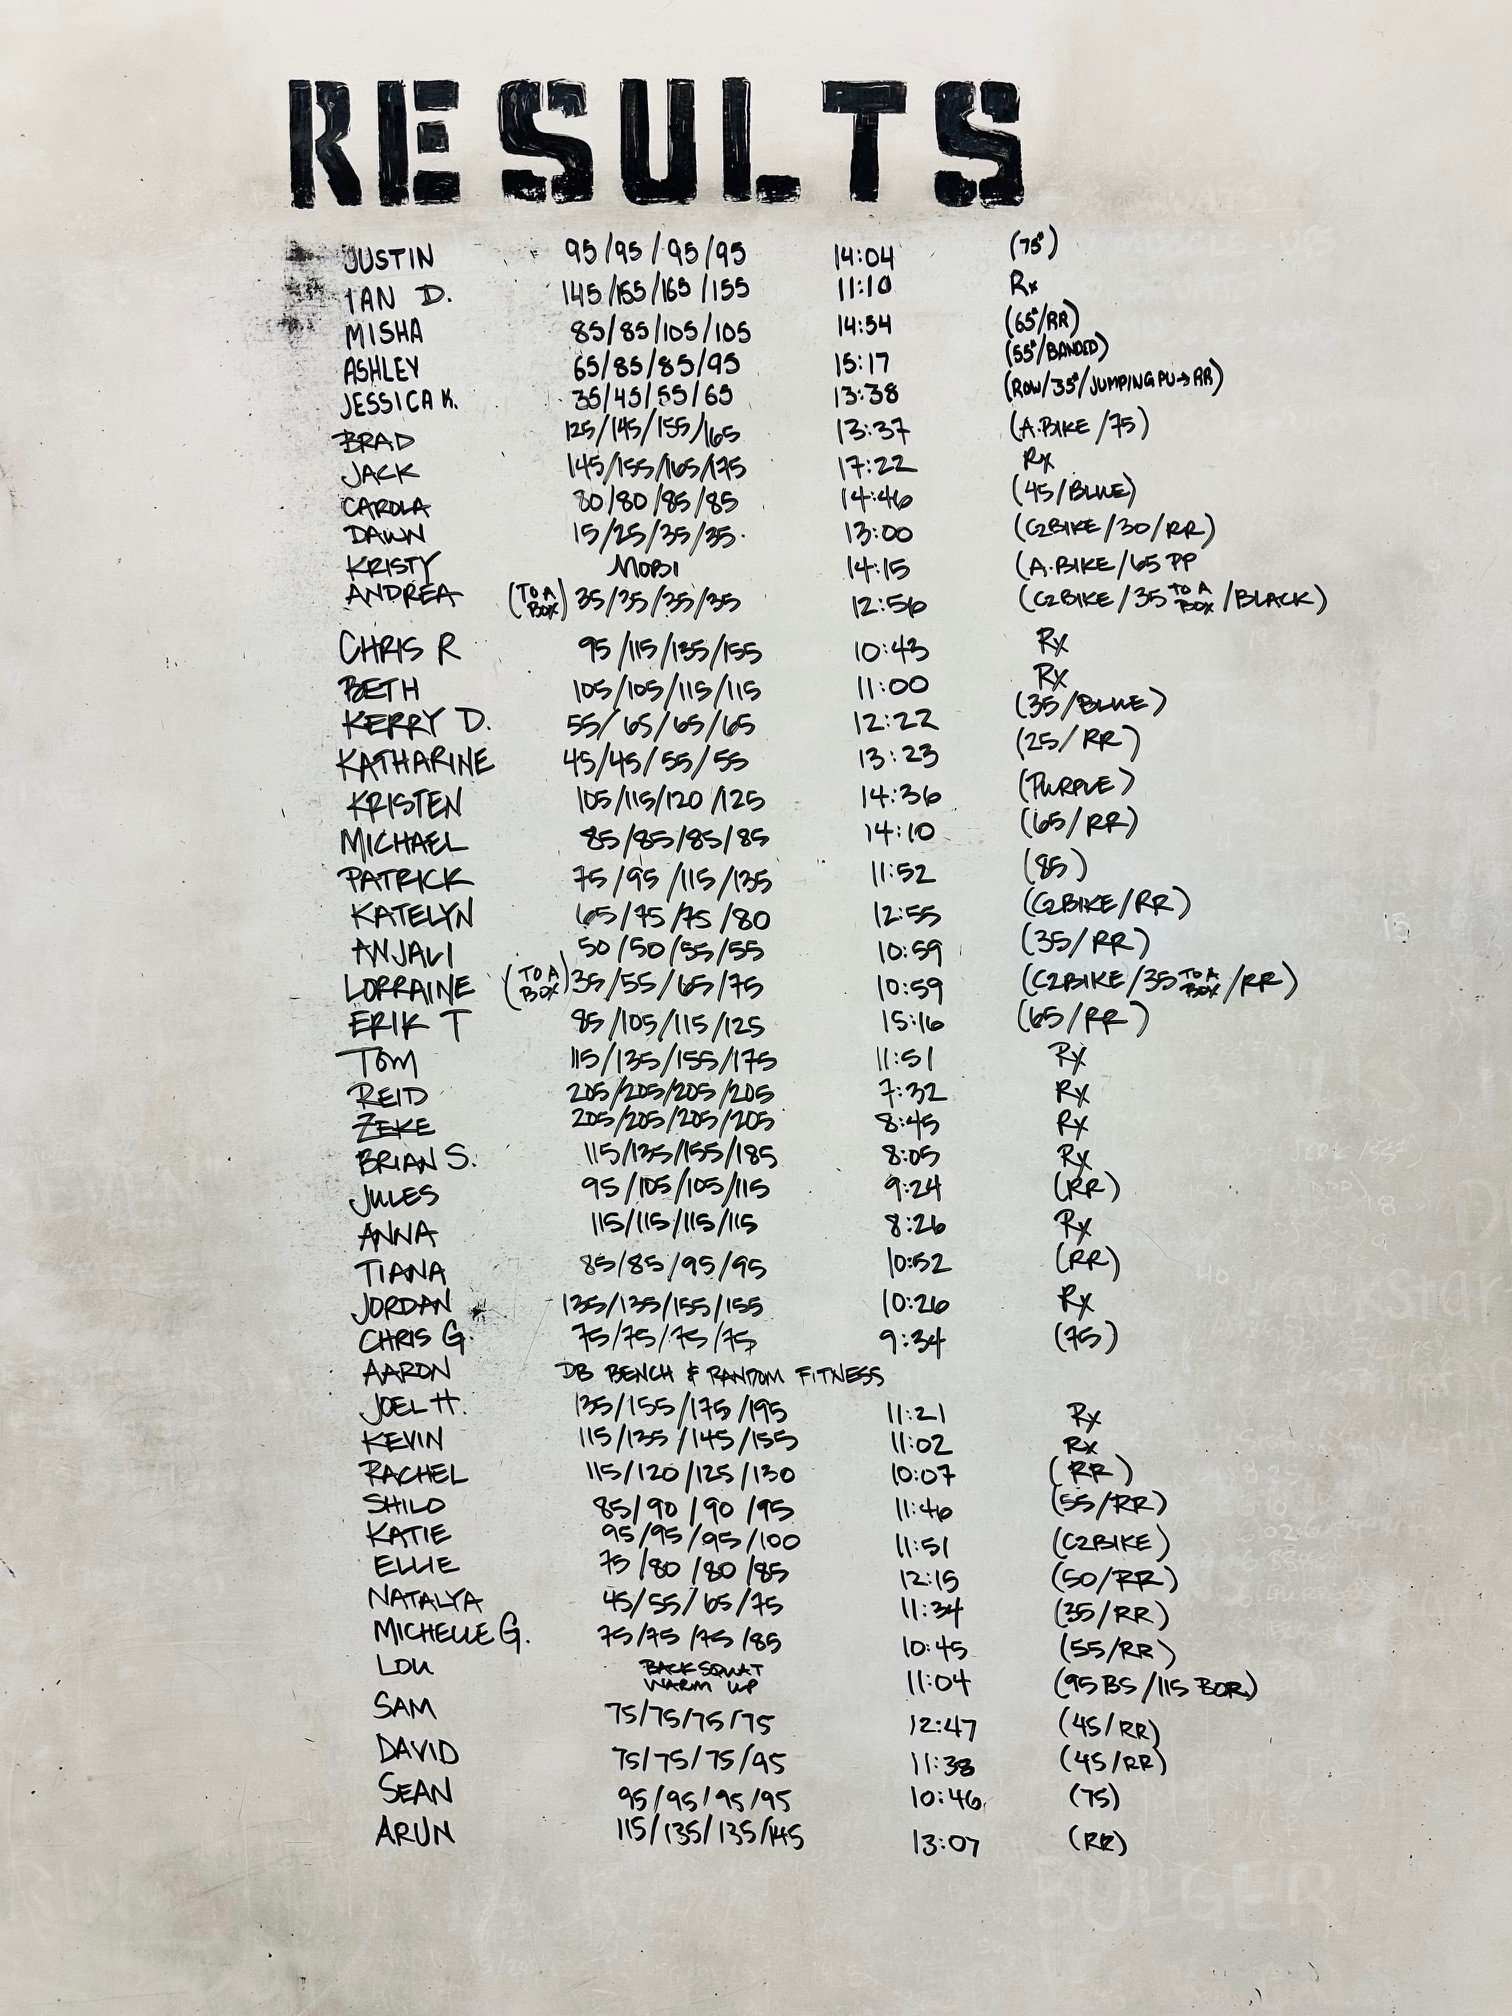 RESULTS
JUSTIN 95/95/95/95 14:04 (75#)
IAN D. 145/155/165/155 11:10 Rx
MISHA 85/85/105/105 14:54 (65#/RR)
ASHLEY 65/85/85/95 15:17 (55#/BANDED)
JESSICA K. 35/45/55/65 13:38 (ROW/35#/JUMPING PU→RR)
BRAD 125/145/155/165 13:37 (A.BIKE/75)
JACK 145/155/165/175 17:22 Rx
CAROLA 80/80/85/85 14:46 (45/BLUE)
DAWN 15/25/35/35 13:00 (C2BIKE/30/RR)
KRISTY MOBI 14:15 (A.BIKE/65 PP
ANDREA (TO A BOX) 35/35/35/35 12:56 (C2BIKE/35 TO A BOX/BLACK)
CHRIS R 95/115/135/155 10:43 Rx
BETH 105/105/115/115 11:00 Rx
KERRY D. 55/65/65/65 12:22 (35/BLUE)
KATHARINE 45/45/55/55 13:23 (25/RR)
KRISTEN 105/115/120/125 14:36 (PURPLE)
MICHAEL 85/85/85/85 14:10 (65/RR)
PATRICK 75/95/115/135 11:52 (85)
KATELYN 65/75/75/80 12:55 (C2BIKE/RR)
ANJALI 50/50/55/55 10:59 (35/RR)
LORRAINE (TO A BOX) 35/55/65/75 10:59 (C2BIKE/35 TO A BOX/RR)
ERIK T 85/105/115/125 15:16 (65/RR)
TOM 115/135/155/175 11:51 Rx
REID 205/205/205/205 7:32 Rx
ZEKE 205/205/205/205 8:45 Rx
BRIAN S. 115/135/155/185 8:05 Rx
JULES 95/105/105/115 9:24 (RR)
ANNA 115/115/115/115 8:26 Rx
TIANA 85/85/95/95 10:52 (RR)
JORDAN 135/135/155/155 10:26 Rx
CHRIS G. 75/75/75/75 9:34 (75)
AARON DB BENCH & RANDOM FITNESS
JOEL H. 135/155/175/195 11:21 Rx
KEVIN 115/135/145/155 11:02 Rx
RACHEL 115/120/125/130 10:07 (RR)
SHILO 85/90/90/95 11:46 (55/RR)
KATIE 95/95/95/100 11:51 (C2BIKE)
ELLIE 75/80/80/85 12:15 (50/RR)
NATALYA 45/55/65/75 11:34 (35/RR)
MICHELLE G. 75/75/75/85 10:45 (55/RR)
LOU BACK SQUAT WARM UP 11:04 (95 BS/115 BOR)
SAM 75/75/75/75 12:47 (45/RR)
DAVID 75/75/75/95 11:38 (45/RR)
SEAN 95/95/95/95 10:46 (75)
ARUN 115/135/135/145 13:07 (RR)
BULGER